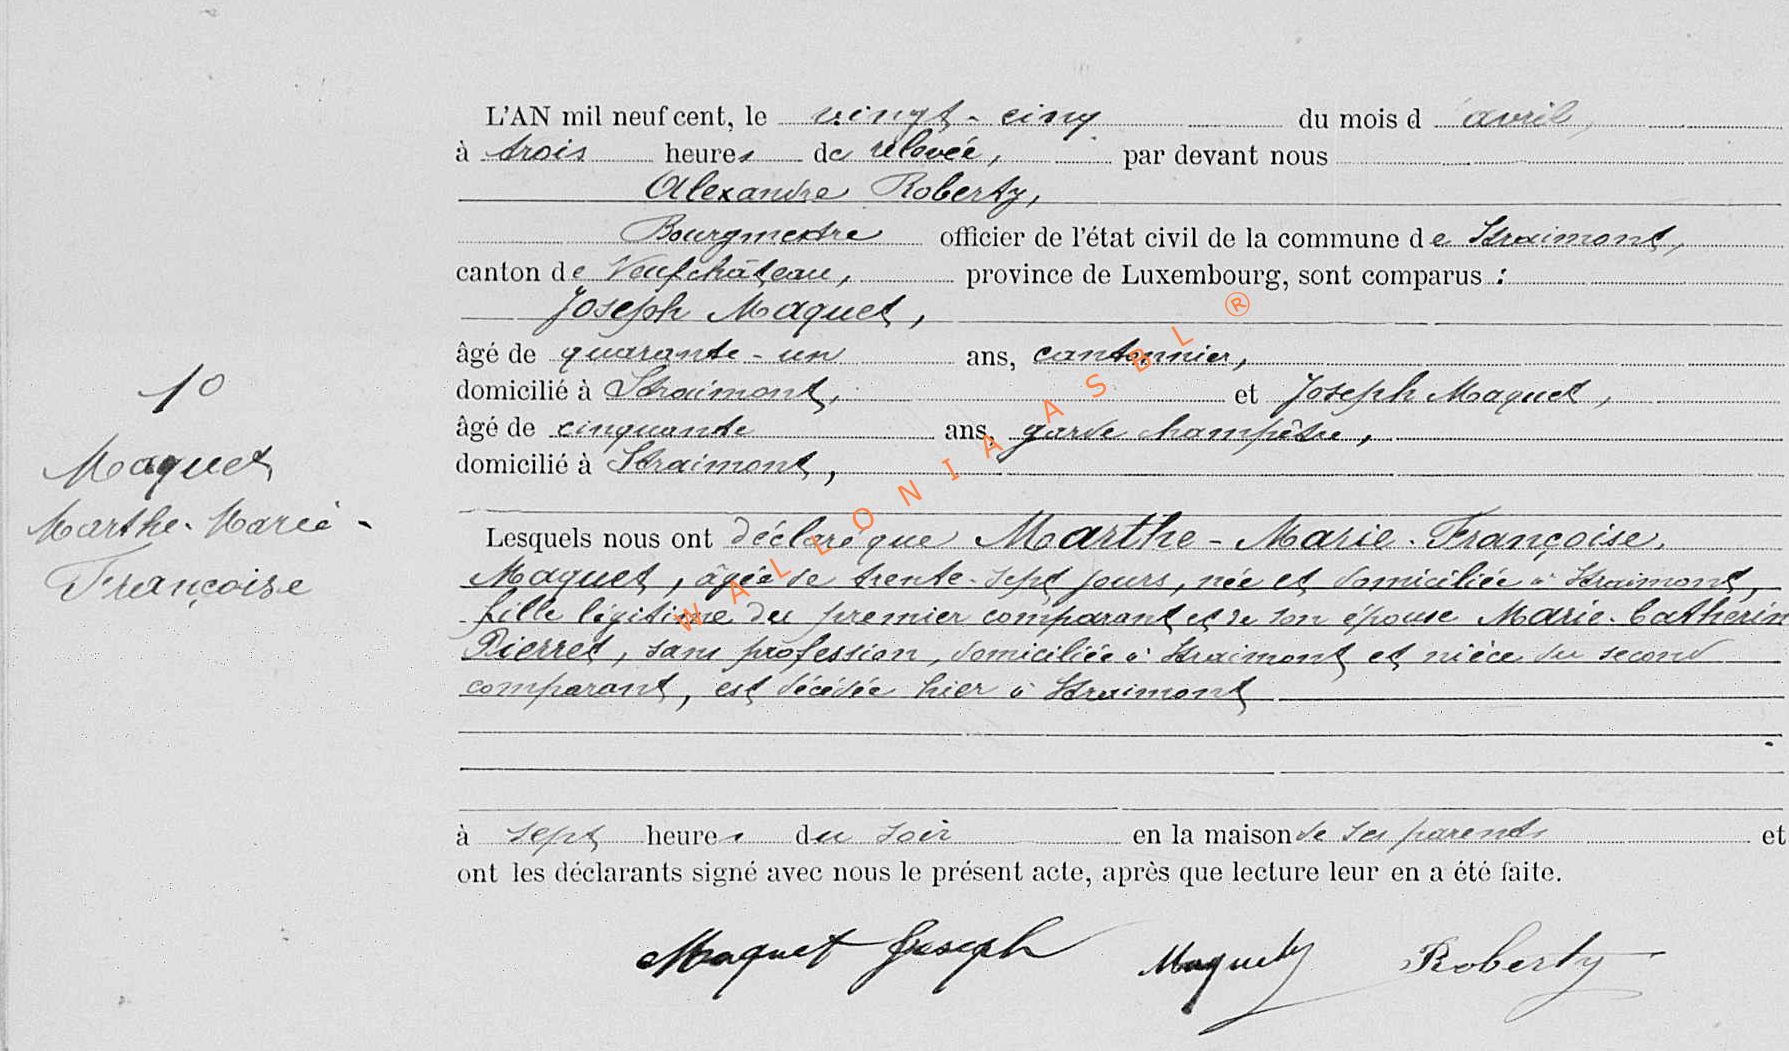 L'AN mil neuf cent, le vingt-cinq du mois d'avril,
à trois heures de relevée, par devant nous
Alexandre Roberty,
Bourgmestre officier de l'état civil de la commune de Straimont,
canton de Neufchâteau, province de Luxembourg, sont comparus :
Joseph Maquet,
âgé de quarante-un ans, cantonnier,
domicilié à Straimont, et Joseph Maquet,
âgé de cinquante ans, garde champêtre,
domicilié à Straimont,
1°
Maquet
Marthe-Marie-
Françoise
Lesquels nous ont déclaré que Marthe-Marie-Françoise
Maquet, âgée de trente-sept jours, née et domiciliée à Straimont,
fille légitime du premier comparant et de son épouse Marie-Catherin
Pierret, sans profession, domiciliée à Straimont et nièce du second
comparant, est décédée hier à Straimont
à sept heures du soir en la maison de ses parents et
ont les déclarants signé avec nous le présent acte, après que lecture leur en a été faite.
Maquet Joseph Maquet J Roberty
WALLONIA ASBL ®